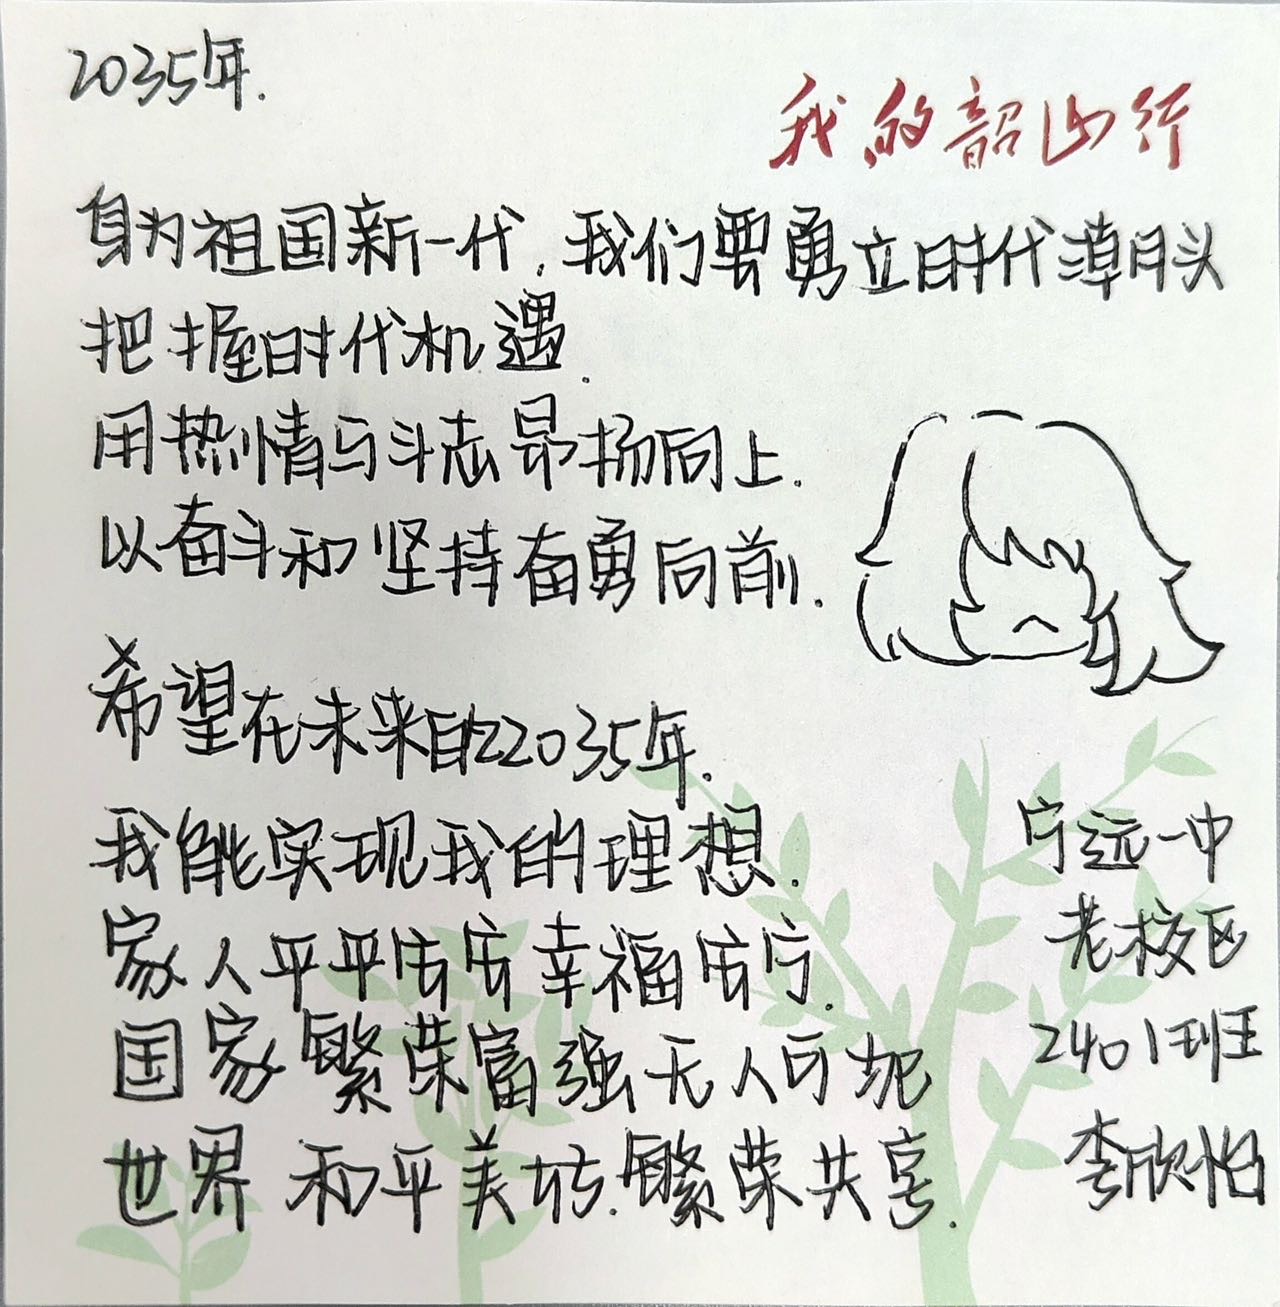 2035年.
我的韶山行
身为祖国新一代,我们要勇立时代潮头
把握时代机遇.
用热情与斗志昂扬向上.
以奋斗和坚持奋勇向前.
希望在未来的2035年.
我能实现我的理想.
家人平平安安幸福安宁.
国家繁荣富强无人可犯
世界和平美好.繁荣共享.
宁远一中
老校区
2401班
李欣怡